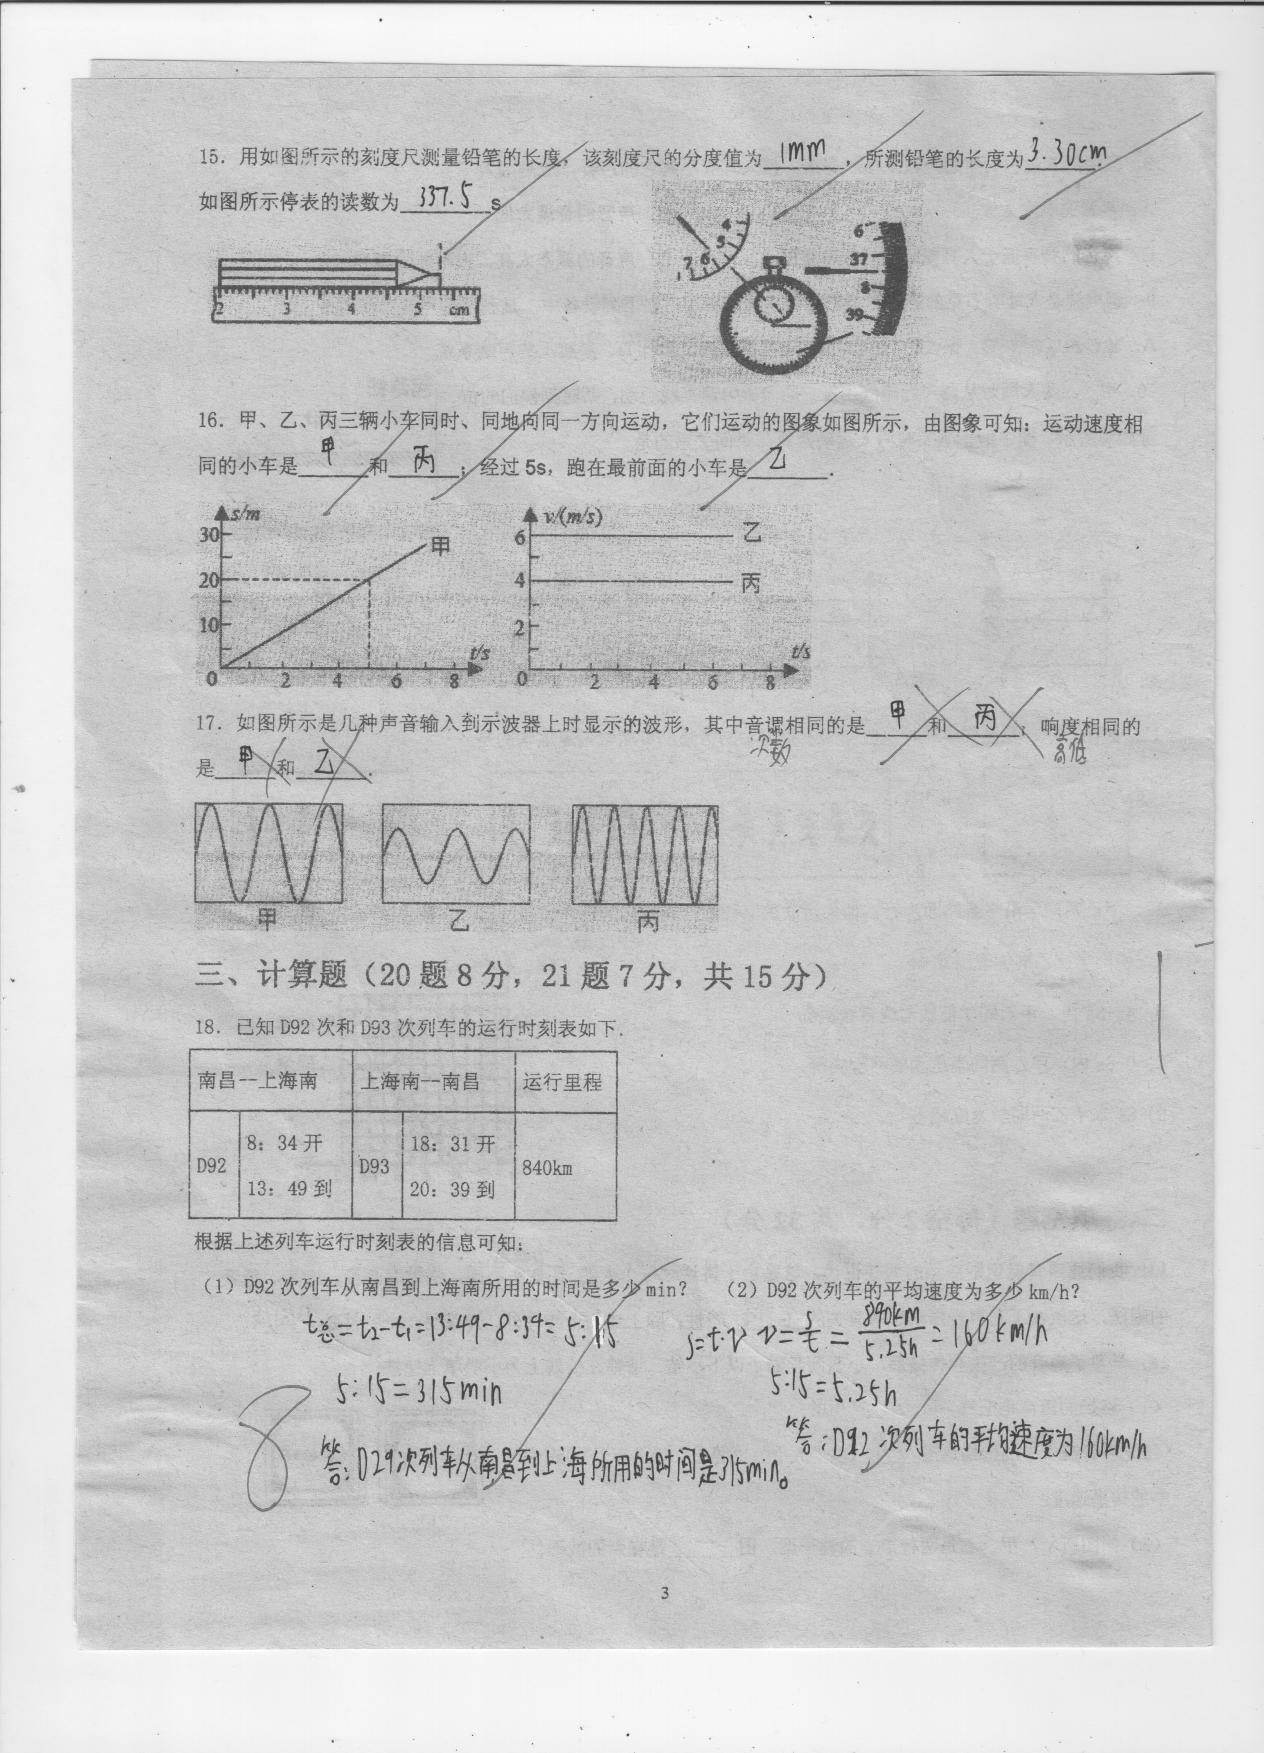 15. 用如图所示的刻度尺测量铅笔的长度，该刻度尺的分度值为 1mm ，所测铅笔的长度为 3.30cm.
如图所示停表的读数为 337.5 s
2 3 4 5 cm
4 5 6 7
6 37 8 39
16. 甲、乙、丙三辆小车同时、同地向同一方向运动，它们运动的图象如图所示，由图象可知：运动速度相
同的小车是 甲 和 丙 ；经过 5s，跑在最前面的小车是 乙 .
s/m
30
20
10
0 2 4 6 8
t/s
甲
v/(m/s)
6
4
2
0 2 4 6 8
t/s
乙
丙
17. 如图所示是几种声音输入到示波器上时显示的波形，其中音调相同的是 甲 和 丙 ；响度相同的
次数 高低
是 甲 和 乙 .
甲 乙 丙
三、计算题（20 题 8 分，21 题 7 分，共 15 分）
18. 已知 D92 次和 D93 次列车的运行时刻表如下.
南昌--上海南 上海南--南昌 运行里程
D92 8：34 开 13：49 到 D93 18：31 开 20：39 到 840km
根据上述列车运行时刻表的信息可知：
（1）D92 次列车从南昌到上海南所用的时间是多少 min？ （2）D92 次列车的平均速度为多少 km/h？
t总=t2-t1=13:49-8:34=5:15
5:15=315min
答:D29次列车从南昌到上海所用的时间是315min。
s=t·v v=s/t=840km/5.25h=160km/h
5:15=5.25h
答:D92次列车的平均速度为160km/h
8
3